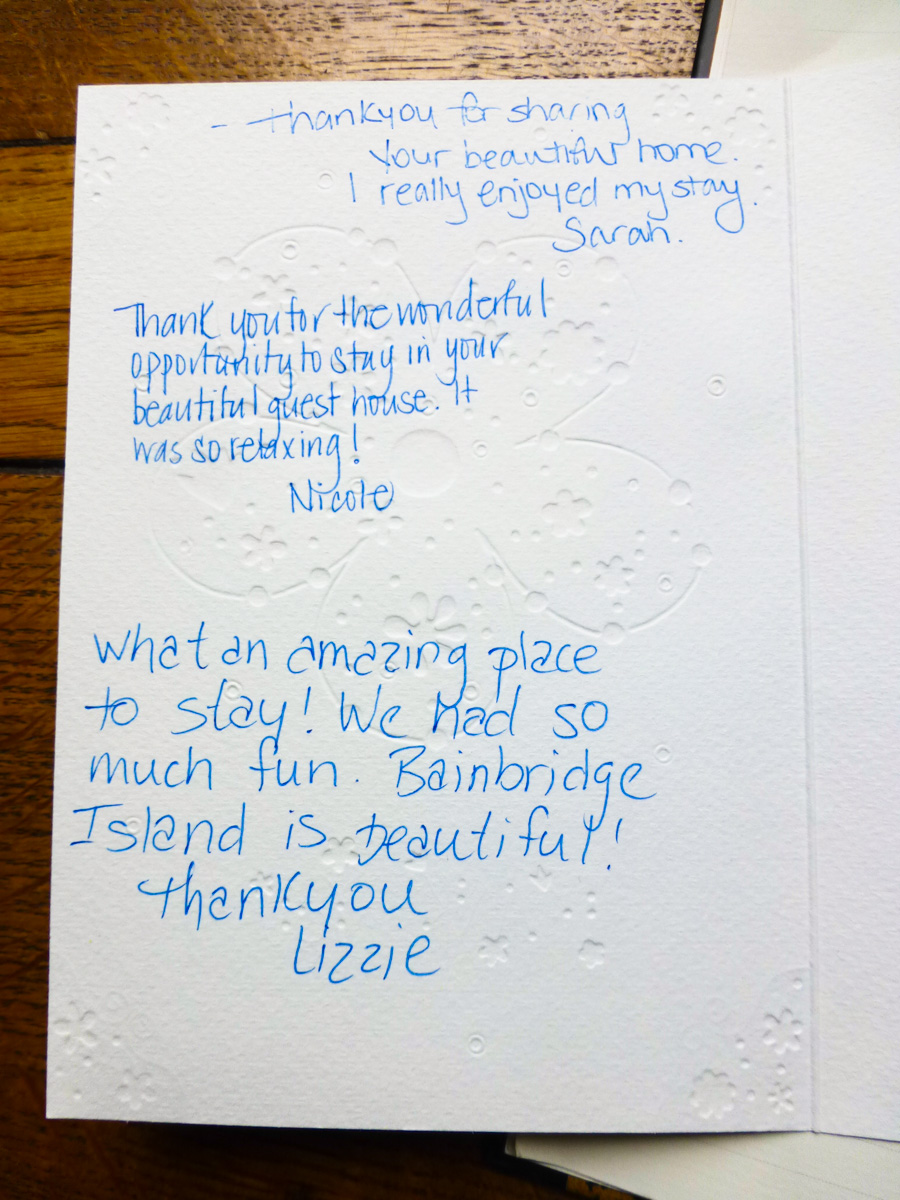 - thankyou for sharing
your beautiful home.
I really enjoyed my stay.
Sarah.
Thank you for the wonderful
opportunity to stay in your
beautiful guest house. It
was so relaxing!
Nicole
What an amazing place
to stay! We had so
much fun. Bainbridge
Island is beautiful!
thankyou
Lizzie